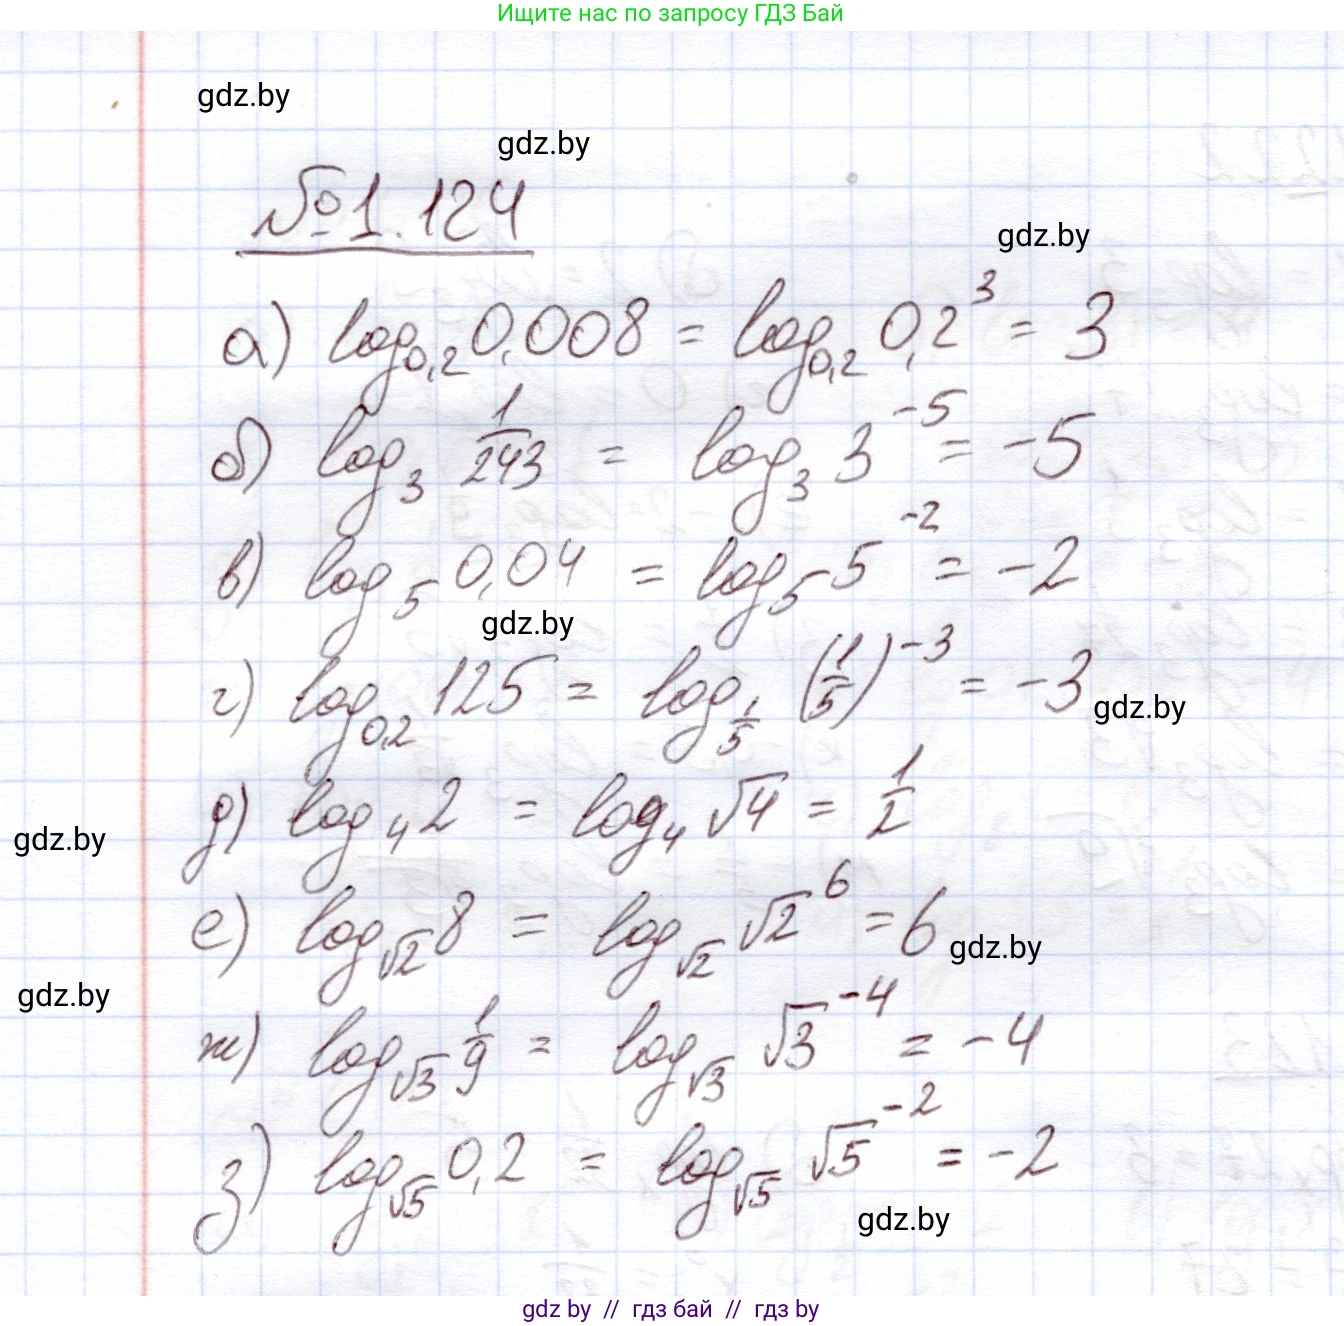 Ищите нас по запросу ГДЗ Бай
gdz.by
gdz.by
№1.124
gdz.by
а) log₀,₂ 0,008 = log₀,₂ 0,2³ = 3
б) log₃ 1/243 = log₃ 3⁻⁵ = -5
в) log₅ 0,04 = log₅ 5⁻² = -2
gdz.by
г) log₀,₂ 125 = log_{1/5} (1/5)⁻³ = -3
gdz.by
д) log₄ 2 = log₄ √4 = 1/2
gdz.by
е) log_{√2} 8 = log_{√2} √2⁶ = 6
gdz.by
gdz.by
ж) log_{√3} 1/9 = log_{√3} √3⁻⁴ = -4
з) log_{√5} 0,2 = log_{√5} √5⁻² = -2
gdz.by
gdz by // гдз бай // гдз by